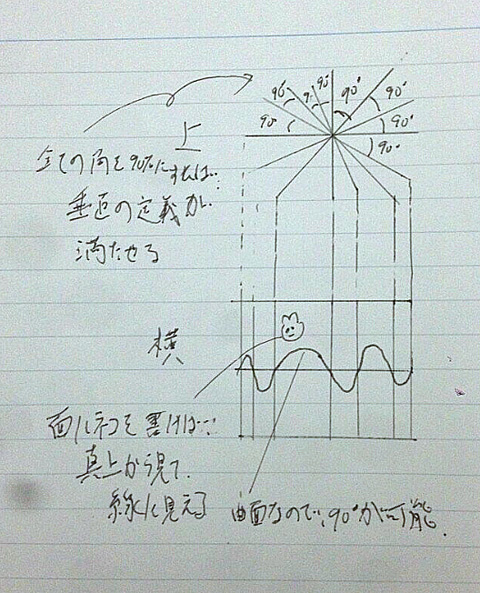 90° 90° 90° 90° 90°
90° 90°
90°
上
全ての角を90°にすれば…
垂直の定義が
満たせる
横
面にネコを書けば…
真上から見て
線に見える
曲面なので、90°が可能.